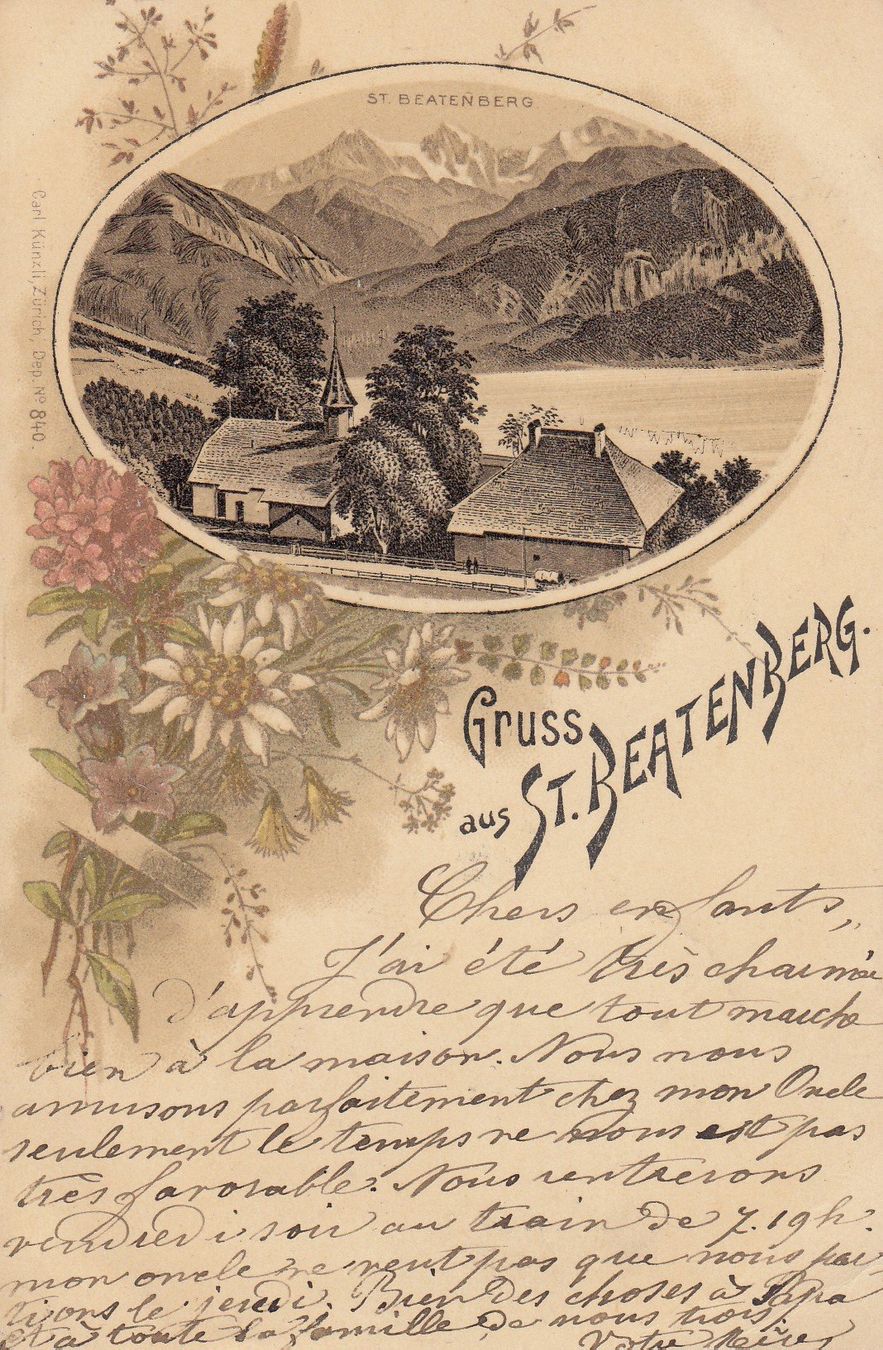 ST. BEATENBERG
Carl Künzli, Zürich, Dep. Nº 840.
Gruss
aus ST. BEATENBERG.
Chers enfants,
J'ai été très charmée
d'apprendre que tout marche
bien à la maison. Nous nous
amusons parfaitement chez mon Oncle
seulement le temps ne nous est pas
très favorable. Nous rentrerons
vendredi soir au train de 7.19h.
mon oncle ne veut pas que nous par-
tions le jeudi. Bien des choses à Papa
et à toute la famille de nous trois.
Votre Mère